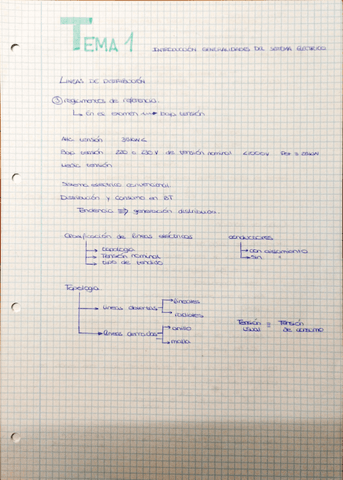 TEMA 1 INTRODUCCIÓN GENERALIDADES DEL SISTEMA ELÉCTRICO
LINEAS DE DISTRIBUCIÓN
③ reglamentos de referencia.
↳ En el examen → baja tensión
Alta tensión
Baja tensión 220 o 230 V de tensión nominal
Media tensión
Sistema eléctrico convencional
Distribución y consumo en BT
Tendencia ⇒ generación distribuida.
Clasificación de líneas eléctricas
→ topología
→ Tensión nominal
→ tipo de tendido
conductores
→ con aislamiento
→ sin "
Topología
→ Líneas abiertas → lineales
→ radiales
→ Líneas cerradas → anillo
→ malla
Tensión usual = Tensión de consumo